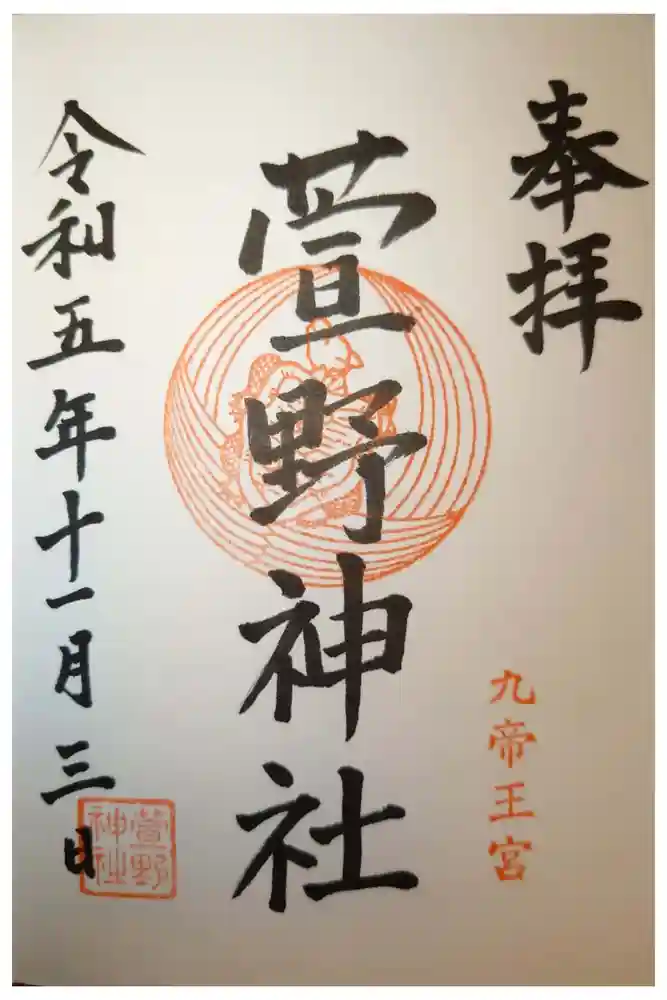 奉拝
九帝王宮
萱野神社
令和五年十一月三日
萱野
神社